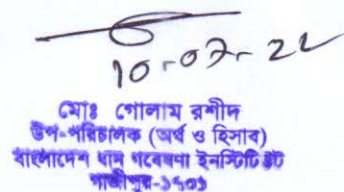 10-07-22
মোঃ গোলাম রশীদ
উপ-পরিচালক (অর্থ ও হিসাব)
বাংলাদেশ ধান গবেষণা ইনস্টিটিউট
গাজীপুর-১৭০১